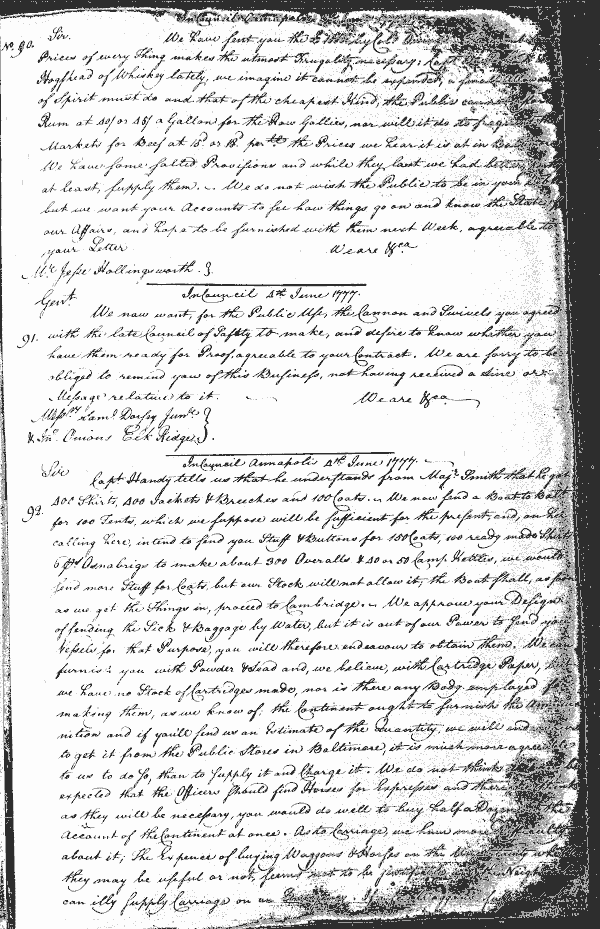 In Council Annapolis
No. 90. Sir. We have sent you the by Col.
Prices of every Thing makes the utmost Frugality necessary; Capt
Hoghead of Whiskey lately, we imagine it cannot be expended, a small
of Spirit must do and that of the cheapest Kind, the Public cannot
Rum at 40/ or 45/ a Gallon for the Row Gallies, nor will it do to
Markets for Beef at 15d. or 18d. per lb the Prices we hear it is at in
We have some salted Provisions and while they last we had better
at least, supply them. We do not wish the Public to be in your
but we want your Accounts to see how things go on and know the State of
our Affairs, and hope to be furnished with them next Week, agreeable to
your Letter We are &ca
Mr. Jesse Hollingsworth. }
In Council 4th June 1777.
Gent
We now want, for the Public Use, the Cannon and Swivels you agreed
91. with the late Council of Safety to make, and desire to know whether you
have them ready for Proof, agreeable to your Contract. We are sorry to be
obliged to remind you of this Business, not having received a Line or
Message relative to it. We are &ca
Messrs Saml. Dorsey Junr.
& Jno. Onions Elk Ridge }.
In Council Annapolis 4th June 1777.
Sir Capt Handy tells us that he understands from Majr. Smith that he got
92. 400 Shirts, 400 Jackets & Breeches and 100 Coats. We now send a Boat to Balt
for 100 Tents, which we suppose will be sufficient for the present, and, on her
calling here, intend to send you Stuff & Buttons for 150 Coats, 100 ready made Shirts
6 ps Osnabrigs to make about 300 Overalls & 40 or 50 Camp Kettles, we would
send more Stuff for Coats, but our Stock will not allow it; the Boat shall, as soon
as we get the Things in, proceed to Cambridge. We approve your Design
of sending the Sick & Baggage by Water, but it is out of our Power to send you
Vessels for that Purpose, you will therefore endeavour to obtain them. We can
furnish you with Powder & Lead and, we believe, with Cartridge Paper, but
we have no Stock of Cartridges made, nor is there any Body employed in
making them, as we know of; the Continent ought to furnish the Ammu
nition and if you'll send us an Estimate of the Quantity, we will
to get it from the Public Stores in Baltimore, it is much more agreeable
to us to do so, than to supply it and Charge it. We do not think
expected that the Officers should find Horses for Expresses and
as they will be necessary, you would do well to buy half a Dozen
Account of the Continent at once. As to Carriage, we know more
about it; the Expence of buying Waggons & Horses on the
they may be useful or not, seems not to be justifiable
can illy supply Carriage on